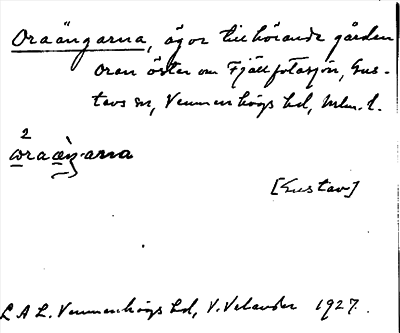 Oraängarna, ägor tillhörande gården
Oran öster om Fjällfotasjön, Gus-
tavs sn, Vemmenhögs hd, Mlm. l.
2
ωraæŋarna
[Gustav]
L A L. Vemmenhögs hd, V. Velander 1927.